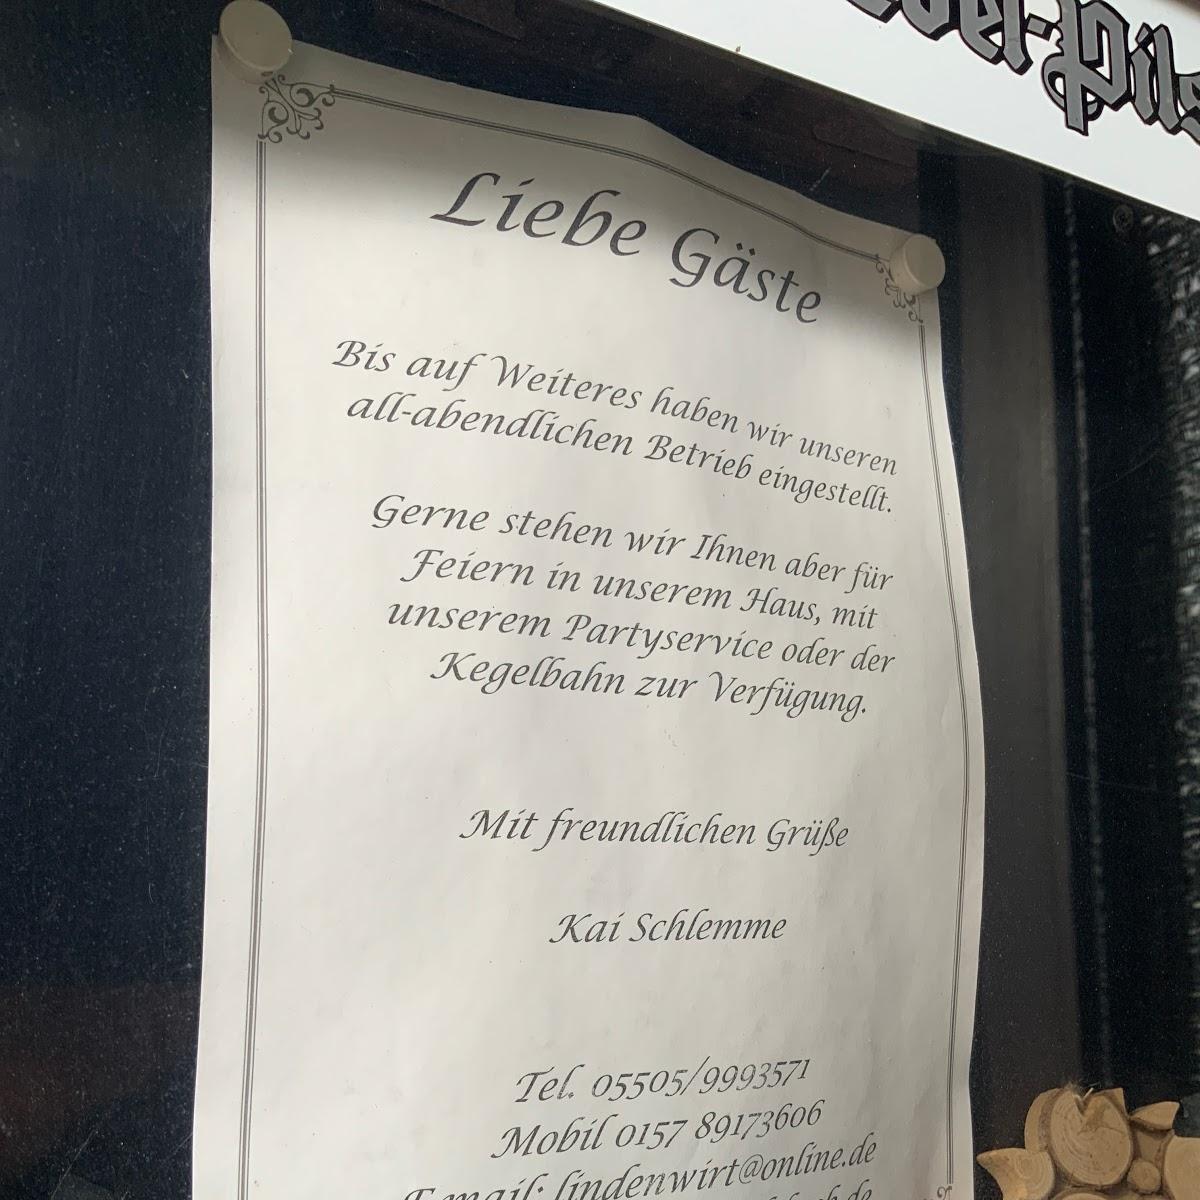 Pils
Liebe Gäste
Bis auf Weiteres haben wir unseren
all-abendlichen Betrieb eingestellt.
Gerne stehen wir Ihnen aber für
Feiern in unserem Haus, mit
unserem Partyservice oder der
Kegelbahn zur Verfügung.
Mit freundlichen Grüße
Kai Schlemme
Tel. 05505/9993571
Mobil 0157 89173606
Email: lindenwirt@online.de